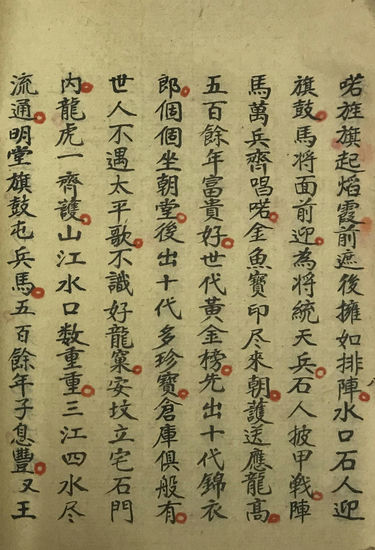 喏旌旗起焰霞前遮後擁如排陣水口石人迎
旗鼓馬将面前迎為將統天兵石人披甲戰陣
馬萬兵齊唱喏金魚寶印尽来朝護送應龍高
五百餘年富貴好世代黃金榜先出十代錦衣
郎個個坐朝堂後出十代多珍寶倉庫俱般有
世人不遇太平歌不識好龍窠安坟立宅石門
内龍虎一齊護山江水口数重重三江四水尽
流通明堂旗鼓屯兵馬五百餘年子息豐又王